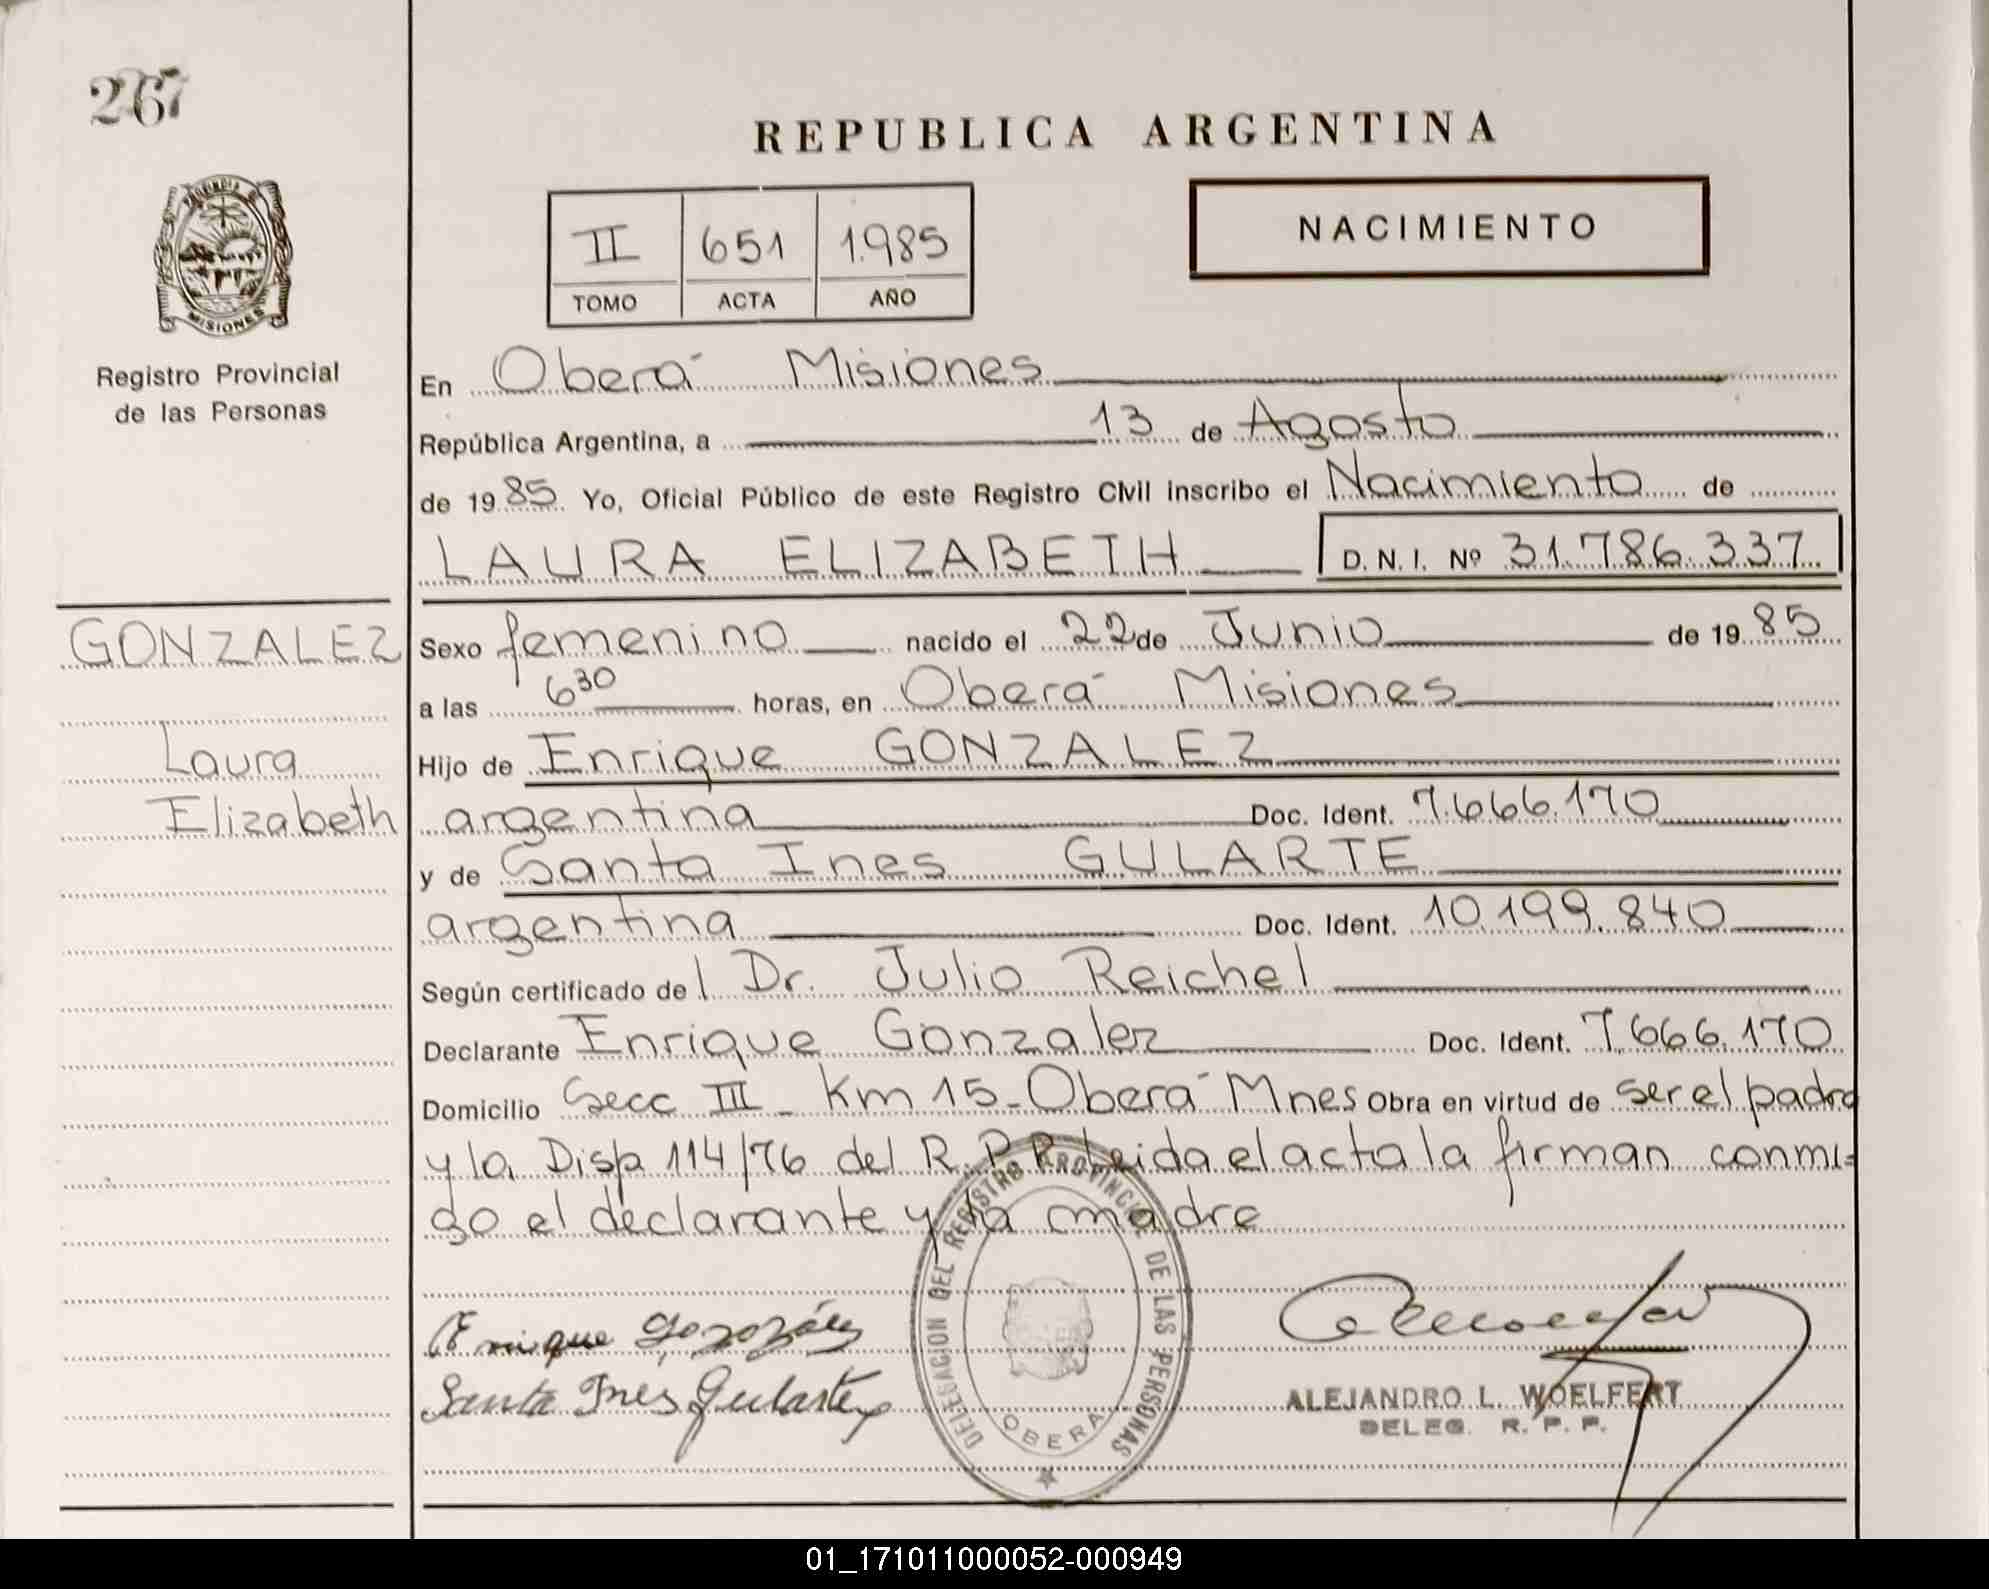 267
REPUBLICA ARGENTINA
PROVINCIA DE MISIONES
II 651 1.985
TOMO ACTA AÑO
NACIMIENTO
Registro Provincial
de las Personas
En Oberá Misiones
República Argentina, a 13 de Agosto
de 1985. Yo, Oficial Público de este Registro Civil inscribo el Nacimiento de
LAURA ELIZABETH D. N. I. Nº 31.786.337
GONZALEZ
Laura
Elizabeth
Sexo femenino nacido el 22 de Junio de 1985
a las 6 30 horas, en Oberá Misiones
Hijo de Enrique GONZALEZ
argentina Doc. Ident. 7.666.170
y de Santa Ines GULARTE
argentina Doc. Ident. 10.199.840
Según certificado del Dr. Julio Reichel
Declarante Enrique Gonzalez Doc. Ident. 7.666.170
Domicilio Secc III - Km 15 - Oberá Mnes Obra en virtud de ser el padre
y la Disp 114/76 del R.P.P. Leida el acta la firman conmi=
go el declarante y la madre
Enrique Gonzalez
Santa Ines Gularte
DELEGACION DEL REGISTRO PROVINCIAL DE LAS PERSONAS
OBERA
ALEJANDRO L. WOELFERT
DELEG. R. P. P.
01_171011000052-000949